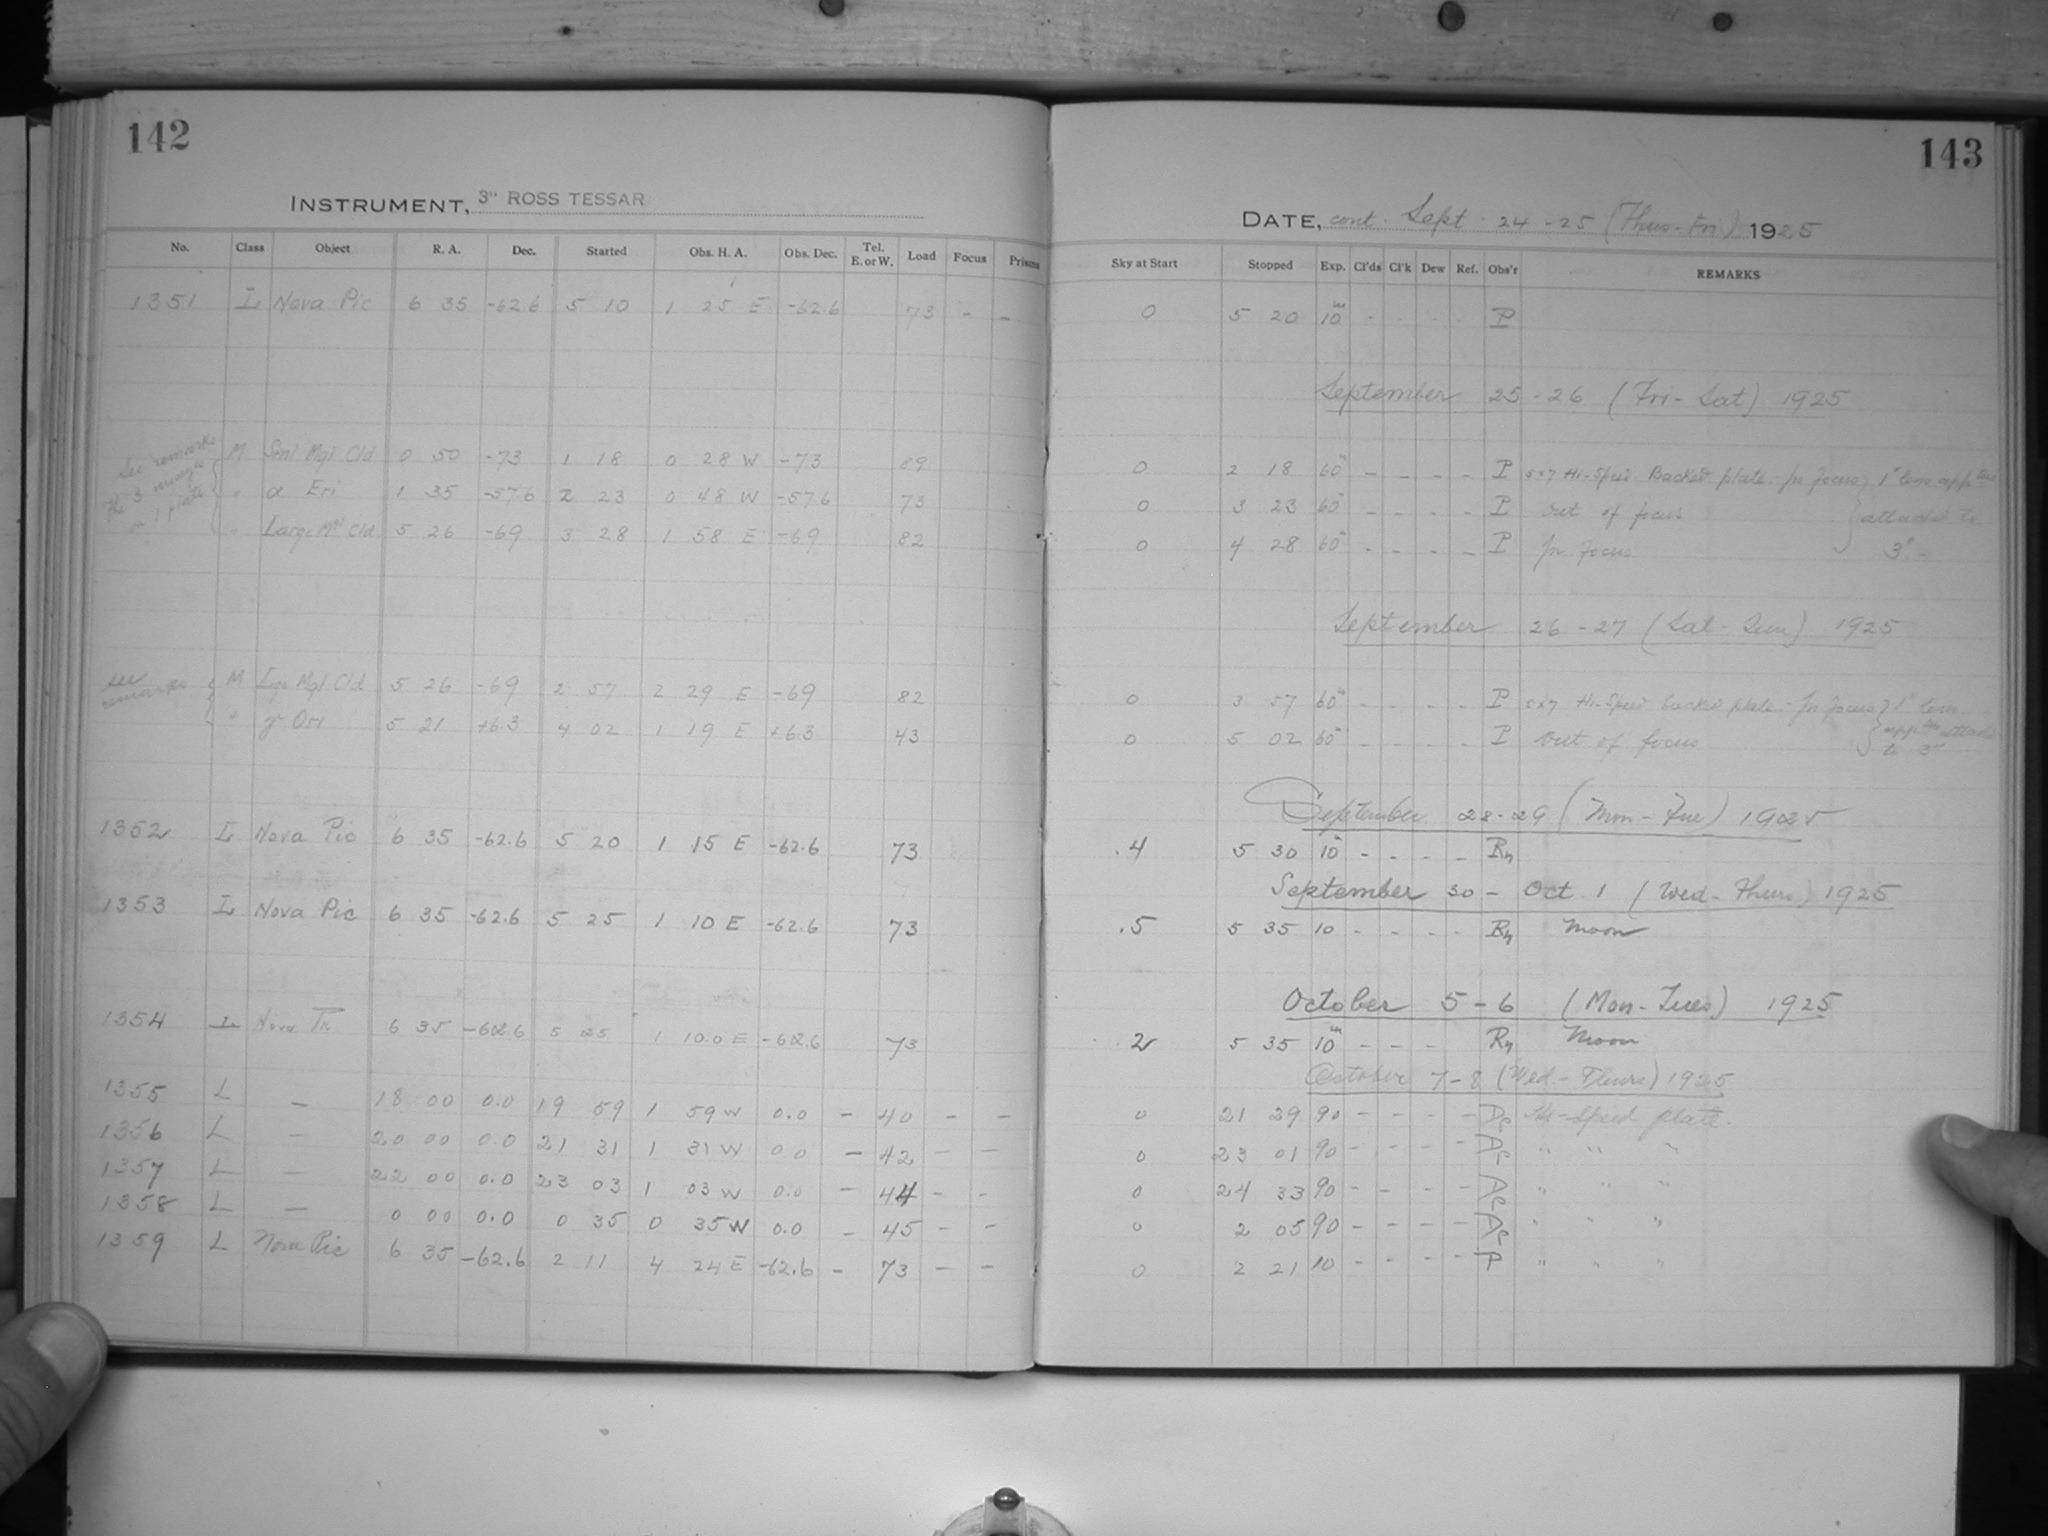 142
INSTRUMENT, 3" ROSS TESSAR
No. Class Object R. A. Dec. Started Obs. H. A. Obs. Dec. Tel. E. or W. Load Focus Prisms
1351 L Nova Pic 6 35 -62.6 5 10 1 25 E -62.6 73 - -
See remarks the 3 images on 1 plate
M Sml Mgl Cld 0 50 -73 1 18 0 28 W -73 89
" α Eri 1 35 -57.6 2 23 0 48 W -57.6 73
" Large Mgl Cld 5 26 -69 3 28 1 58 E -69 82
see remarks
M Lge Mgl Cld 5 26 -69 2 57 2 29 E -69 82
" γ Ori 5 21 +6.3 4 02 1 19 E +6.3 43
1352 L Nova Pic 6 35 -62.6 5 20 1 15 E -62.6 73
1353 L Nova Pic 6 35 -62.6 5 25 1 10 E -62.6 73
1354 L Nova 6 35 -62.6 5 25 1 10.0 E -62.6 73
1355 L — 18 00 0.0 19 59 1 59 W 0.0 - 40 - -
1356 L — 20 00 0.0 21 31 1 31 W 0.0 - 42 - -
1357 L — 22 00 0.0 23 03 1 03 W 0.0 - 44 - -
1358 L — 0 00 0.0 0 35 0 35 W 0.0 - 45 - -
1359 L Nova Pic 6 35 -62.6 2 11 4 24 E -62.6 - 73 - -
143
DATE, cont. Sept. 24-25 (Thurs-Fri) 1925
Sky at Start Stopped Exp. Cl'ds Cl'k Dew Ref. Obs'r REMARKS
0 5 20 10m - - - - P
September 25-26 (Fri-Sat) 1925
0 2 18 60m - - - - P 5x7 Hi-Speed Backed plate - In focus } 1" lens
0 3 23 60m - - - - P out of focus attached to
0 4 28 60m - - - - P In focus 3"
September 26-27 (Sat-Sun) 1925
0 3 57 60m - - - - P 5x7 Hi-Speed backed plate - In focus } 1" lens
0 5 02 60m - - - - P out of focus attached to 3"
September 28-29 (Mon-Tue) 1925
.4 5 30 10m - - - - Ry
September 30 - Oct. 1 (Wed-Thurs) 1925
.5 5 35 10 - - - - Ry Moon
October 5-6 (Mon-Tues) 1925
.2 5 35 10m - - - Ry Moon
October 7-8 (Wed-Thurs) 1925
0 21 29 90 - - - - Hi-Speed plate.
0 23 01 90 - - - - " " "
0 24 33 90 - - - - " " "
0 2 05 90 - - - - " " "
0 2 21 10 - - - - P " " "